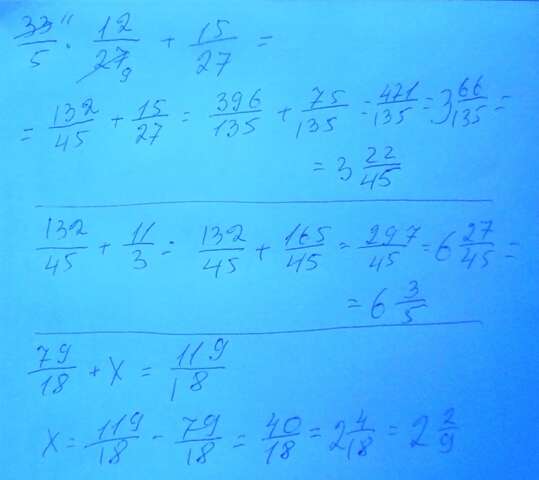 33/5 · 12/27 + 15/27 =
11
9
= 132/45 + 15/27 = 396/135 + 75/135 = 471/135 = 3 66/135 =
= 3 22/45
132/45 + 11/3 = 132/45 + 165/45 = 297/45 = 6 27/45 =
= 6 3/5
79/18 + x = 119/18
x = 119/18 - 79/18 = 40/18 = 2 4/18 = 2 2/9